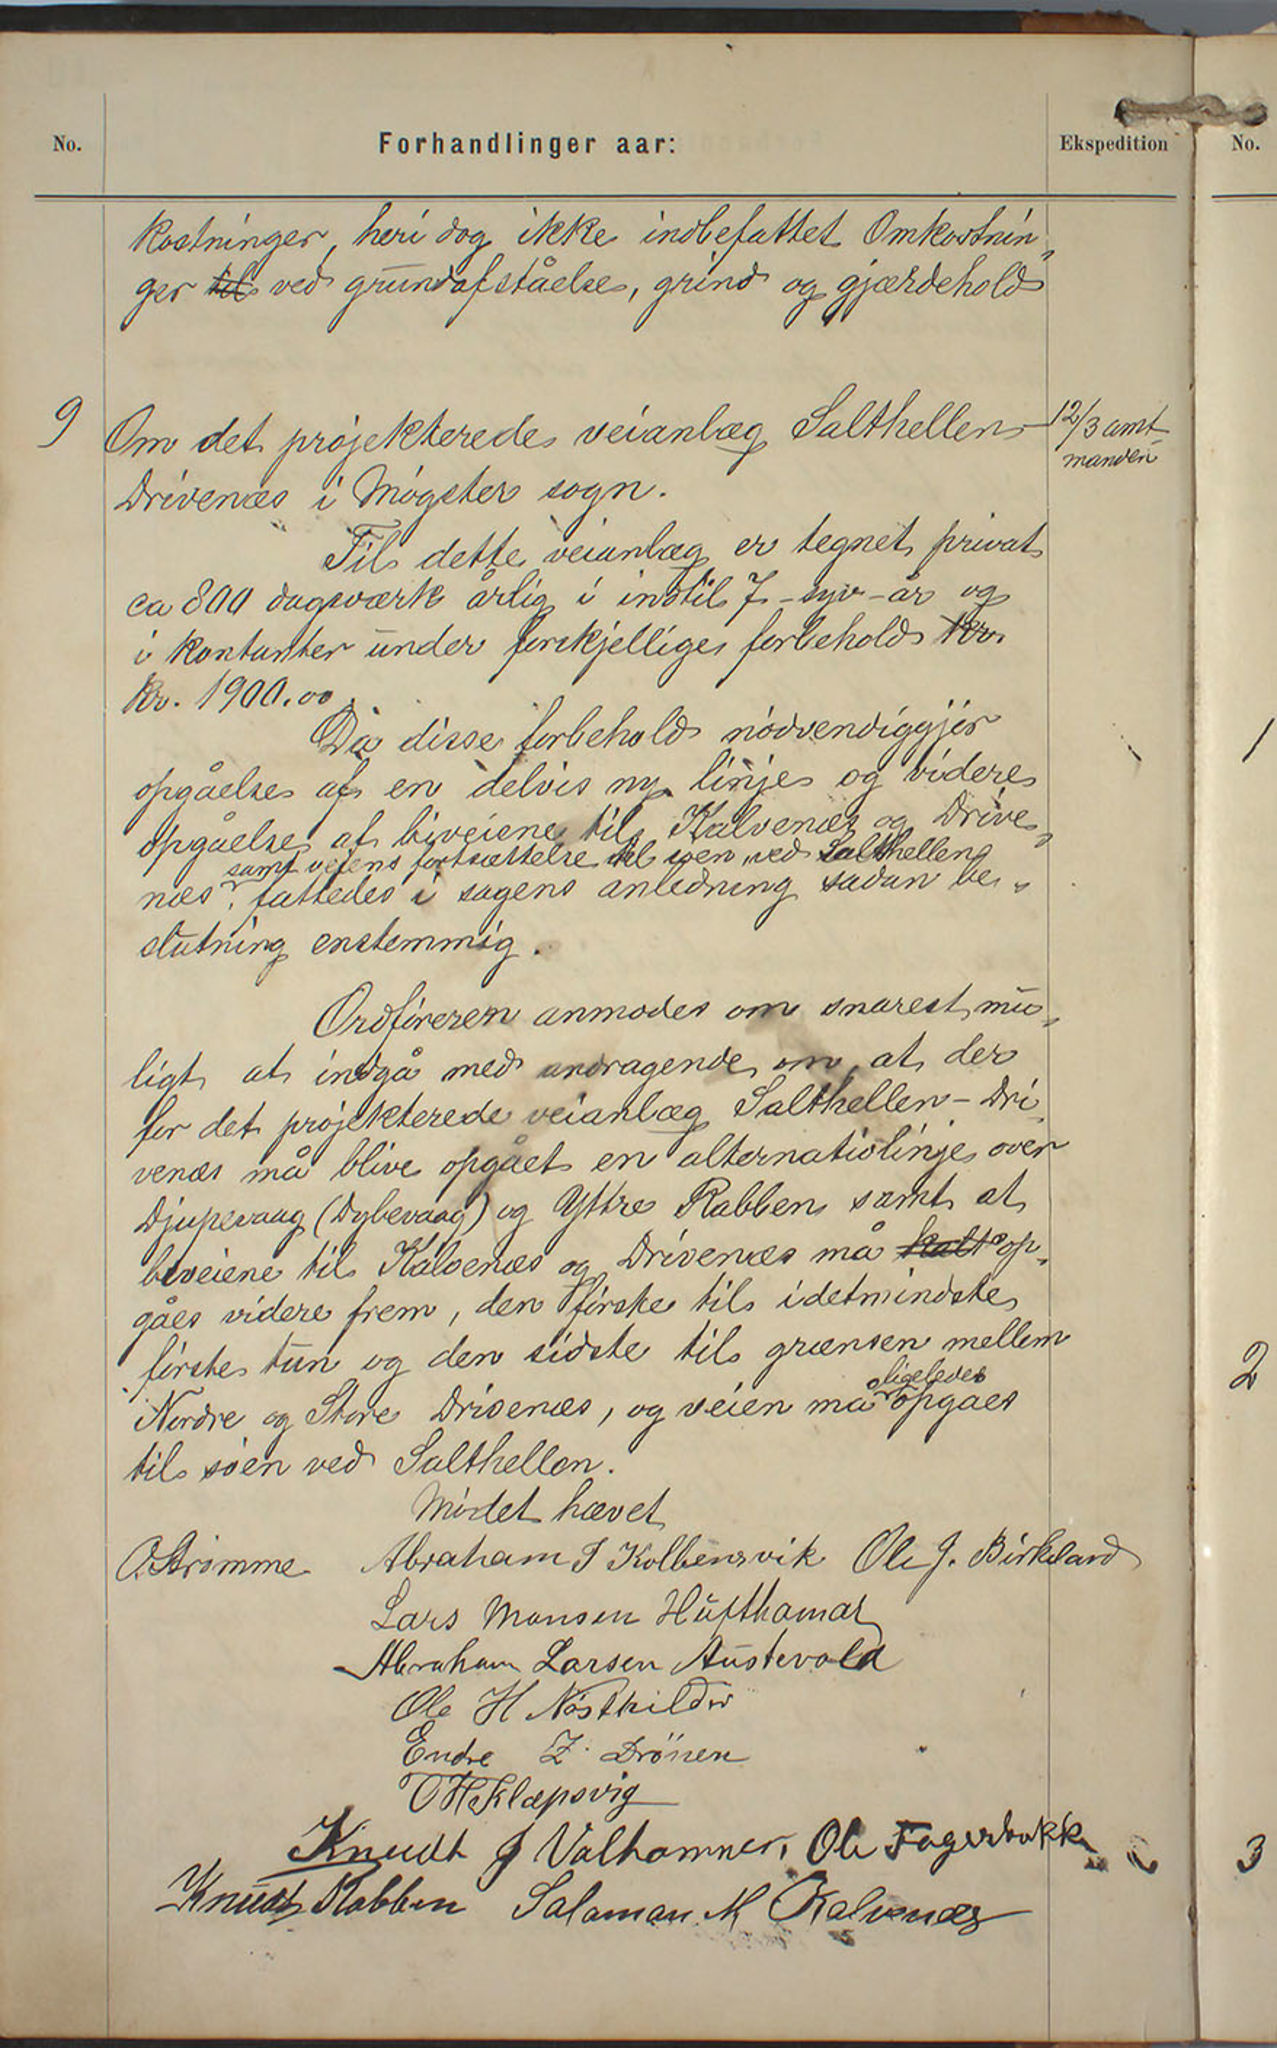 No.
Forhandlinger aar:
Ekspedition
No.
kostninger, heri dog ikke indbefattet Omkostnin„
ger til ved grundafståelse, grind og gjærdehold
9
Om det projekterede veianlæg Salthellen –
12/3 amt-
manden
Drivenæs i Møgster sogn.
Til dette veianlæg er tegnet privat
ca 800 dagsværk årlig i indtil 7 - syv - år og
i kontanter under forskjellige forbehold kr.
kr. 1900.00.
Da disse forbehold nødvendiggjør
opgåelse af en delvis ny linje og videre
opgåelse af biveiene til Kalvenæs og Drive„
samt veiens fortsættelse til søen ved Salthellen
næs, fattedes i sagens anledning sådan be„
slutning enstemmig.
Ordføreren anmodes om snarest mu„
ligt at indgå med andragende om, at der
for det projekterede veianlæg Salthellen – Dri„
venæs må blive opgået en alternativlinje over
Djupevaag (Dybevaag) og Yttre Rabben samt at
biveiene til Kalvenæs og Drivenæs må op„
gåes videre frem, den første til idetmindste
første tun og den sidste til grænsen mellem
ligeledes
Nordre og Store Drivenæs, og veien må opgåes
til søen ved Salthellen.
Mødet hævet
O. Strømme Abraham J Kolbensvik Ole J. Birkeland
Lars Monsen Hufthamar
Abraham Larsen Austevold
Ole H Nøstkilder
Endre Z. Drönen
O H Klæpsvig
Knudt J Valhammer, Ole Fagerbakk
Knudt Rabben Salamon M Kalvenæs
1
2
3